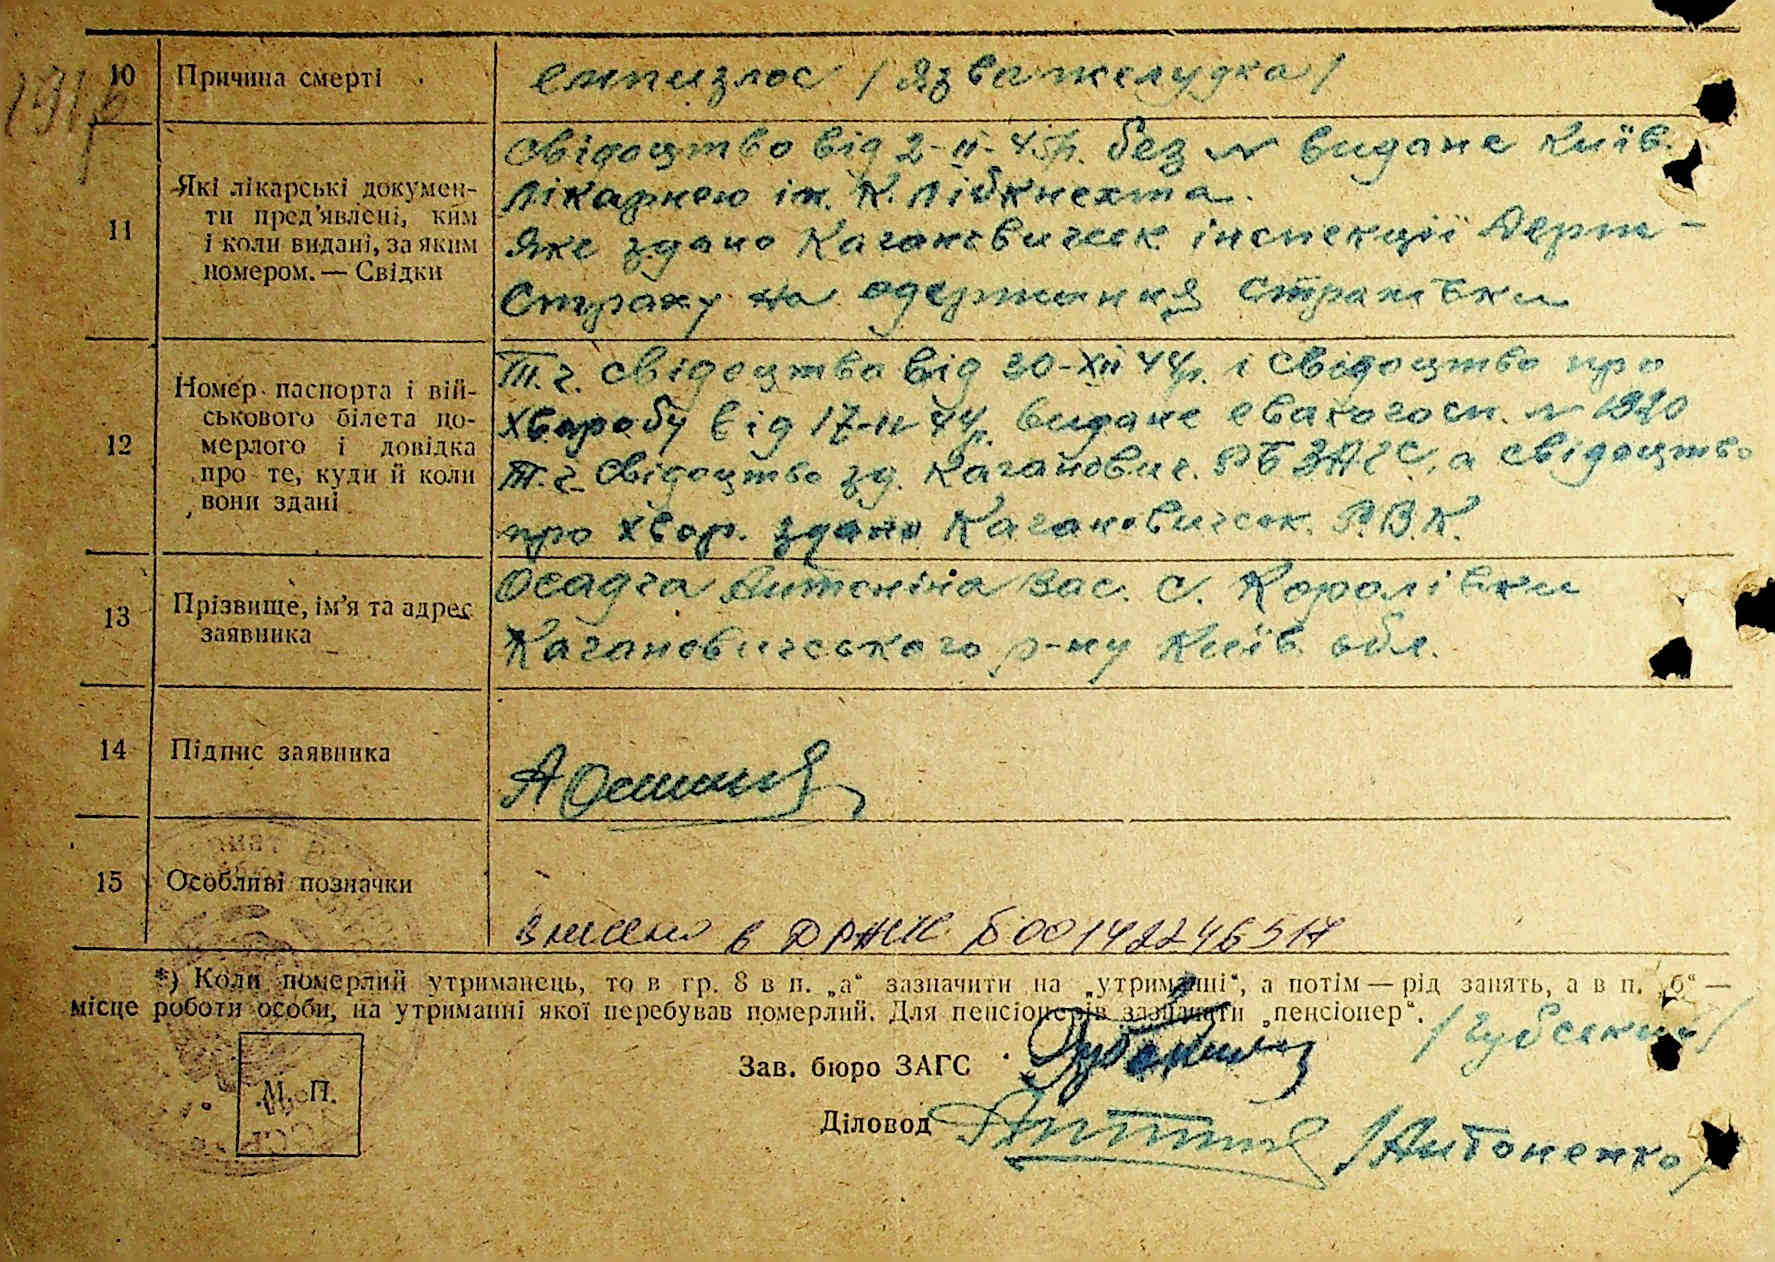 10 Причина смерті
/ Язва желудка /
11 Які лікарські докумен-
ти пред'явлені, ким
і коли видані, за яким
номером. — Свідки
Свідоцтво від 2-II-45р. без № видане Київ.
лікарнею ім. К. Лібкнехта.
Яке здано Кагановичек інспекції Держ-
Страху на одержання Страхівки
12 Номер паспорта і вій-
ськового білета по-
мерлого і довідка
про те, куди й коли
вони здані
Т.ч. свідоцтво від 20-XII 44р. і свідоцтво про
хворобу від 17-II 44р. видане евакогосп. № 1920
Т.ч. свідоцтво зд. Каганович. РБ ЗАГС, а свідоцтво
про хвор. здано Кагановичськ. Р.В.К.
13 Прізвище, ім'я та адрес
заявника
Осадча Антоніна Вас. с. Королівки
Кагановичського р-ну Київ. обл.
14 Підпис заявника
15 Особливі позначки
внесено в ДРАЦС
*) Коли померлий утриманець, то в гр. 8 в п. „а“ зазначити на „утриманні“, а потім — рід занять, а в п. „б“ —
місце роботи особи, на утриманні якої перебував померлий. Для пенсіонерів зазначати „пенсіонер“.
Зав. бюро ЗАГС
М. П.
Діловод /Антоненко/